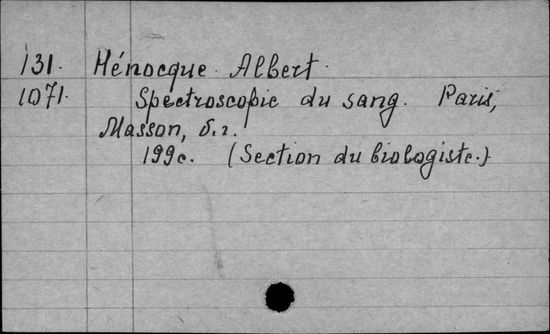 131. Hénocque Albert.
1071. Spectroscopie du sang. Paris,
Masson, б.г.
199с. (Section du biologiste.)